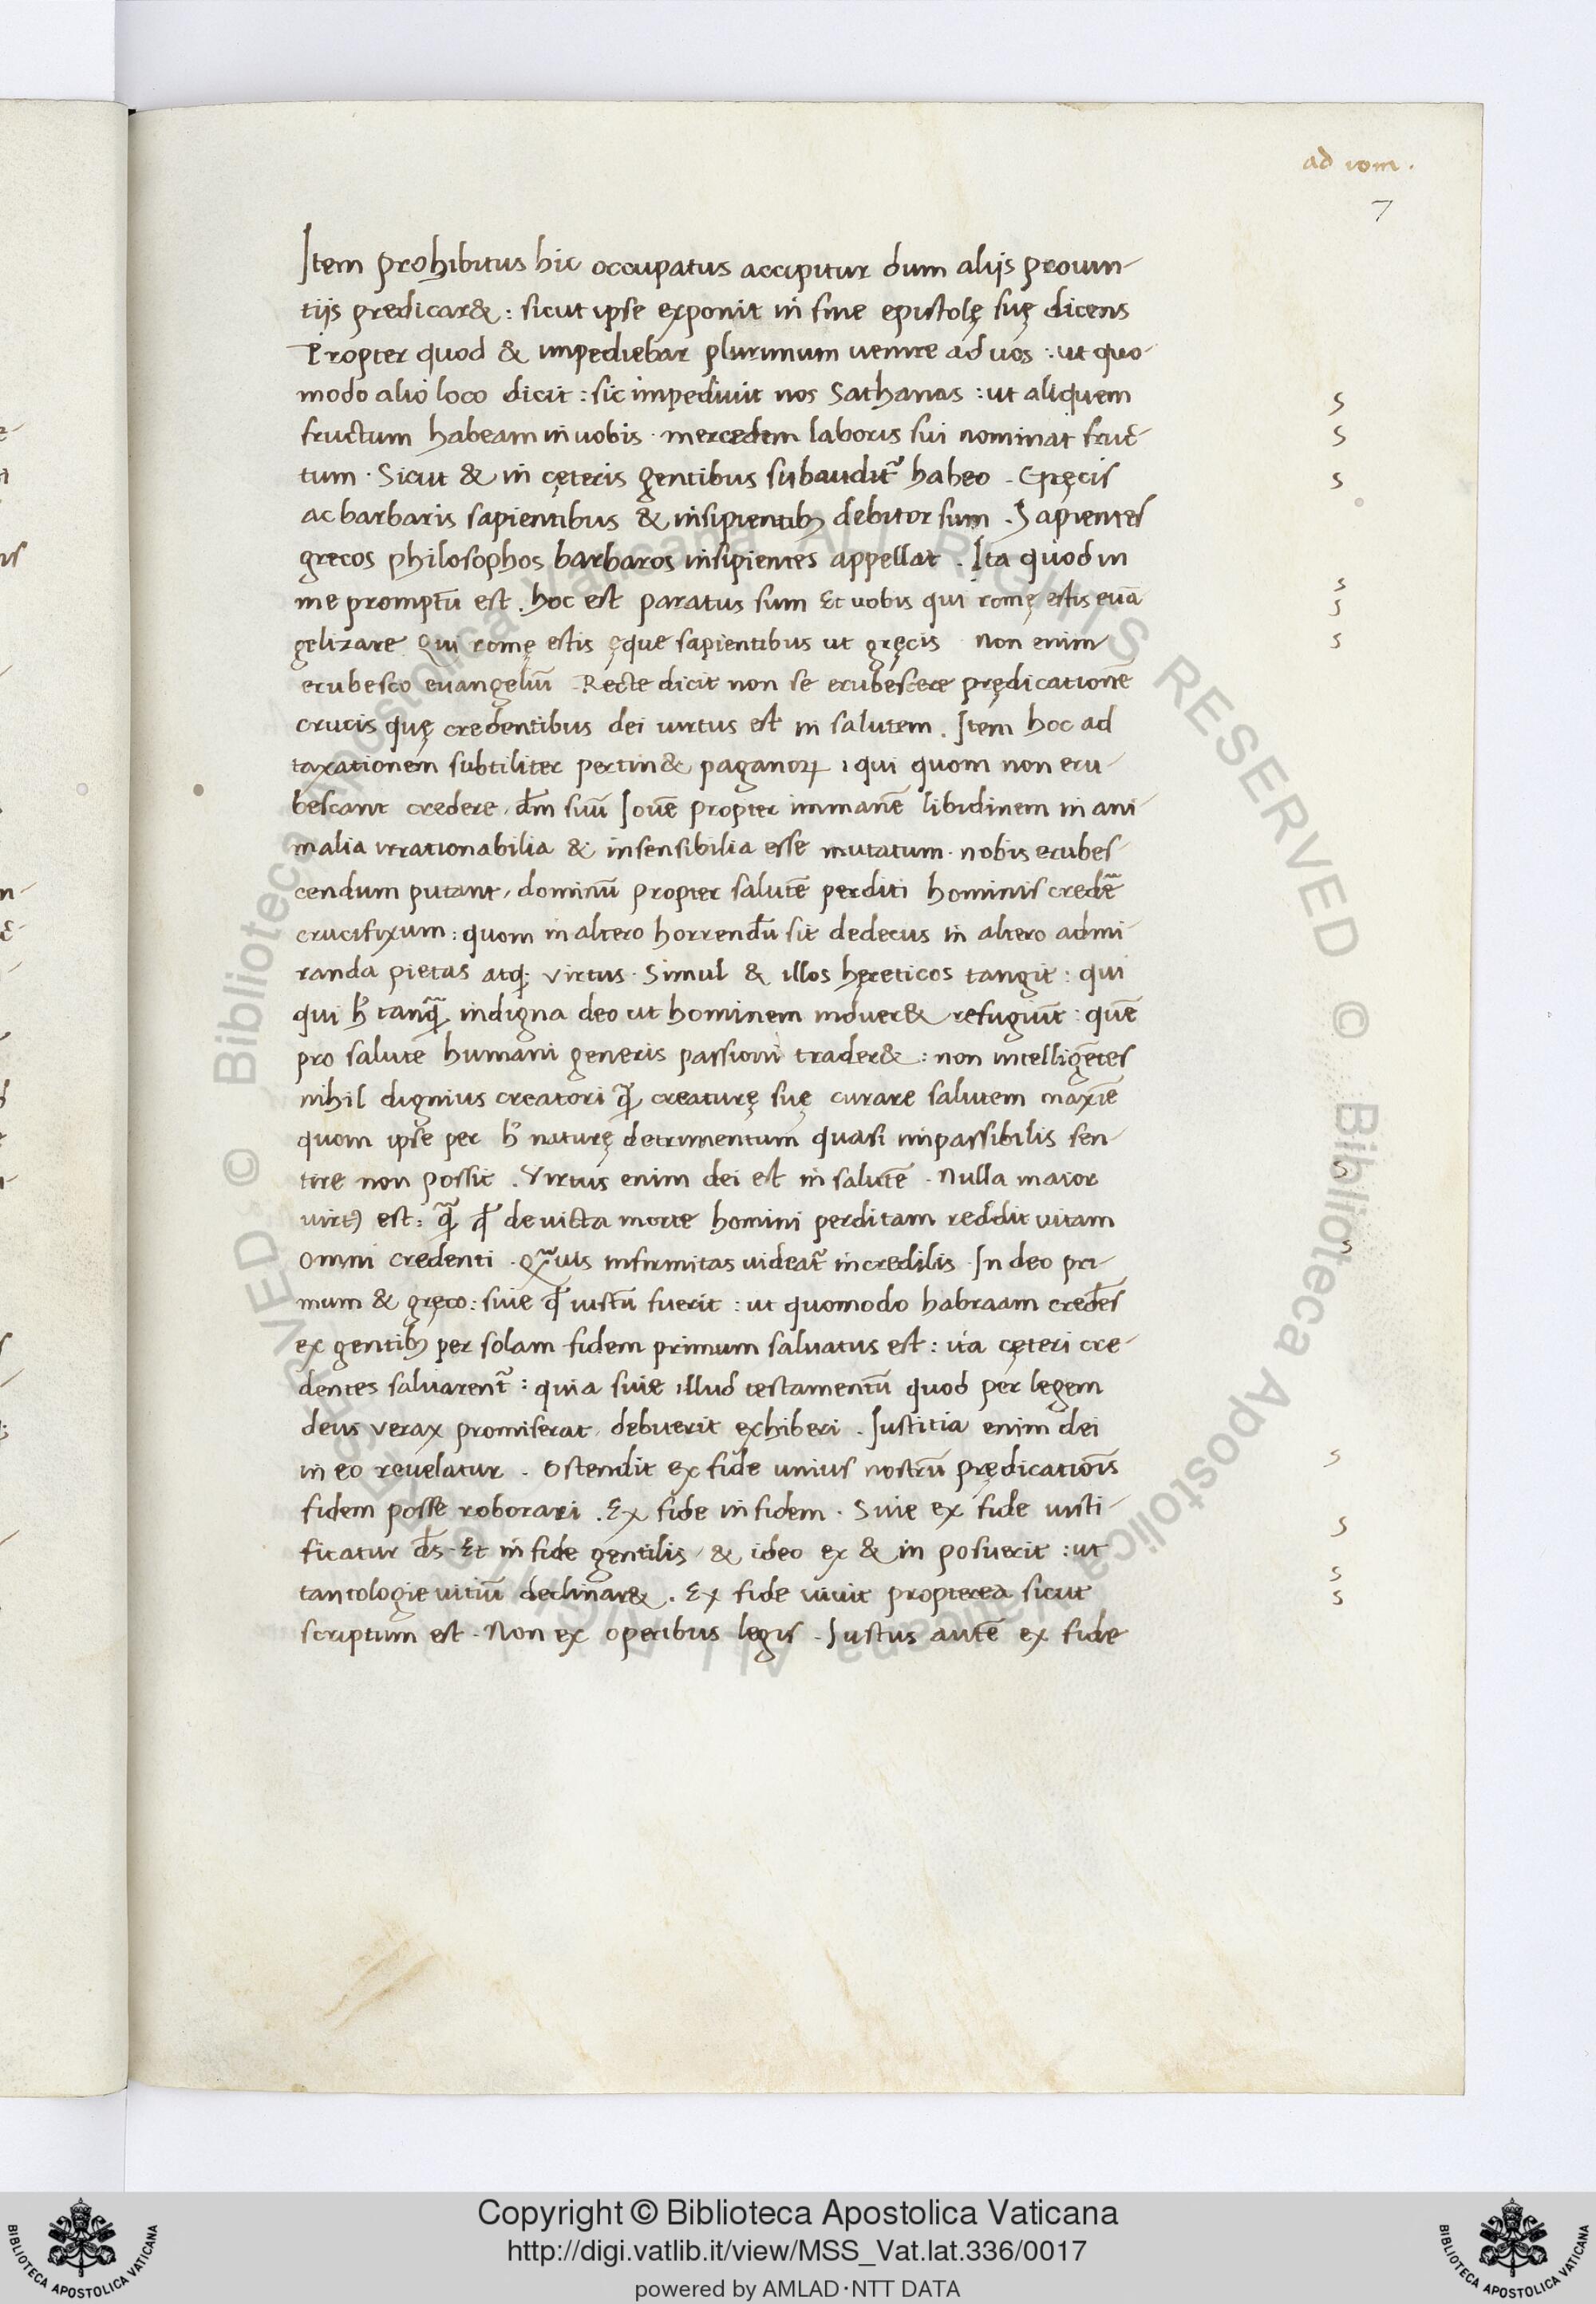 ad rom.
7
Item prohibitus hic occupatus accipitur dum aliis prouin-
tiis predicar&: sicut ipse exponit in fine epistolę suę dicens
Propter quod & impediebar plurimum uenire ad uos: ut quo-
modo alio loco dicit: sic impediuit nos Sathanas: ut aliquem
fructum habeam in uobis. mercedem laboris sui nominat fruc̄-
tum. Sicut & in cęteris gentibus subaudit᷑ habeo. Gręcis
ac barbaris sapientibus & insipientibꝫ debitor sum. Sapientes
grecos philosophos barbaros insipientes appellat. Ita quod in
me promptū est. hoc est paratus sum Et uobis qui romę estis euā
gelizare Qui romę estis ęque sapientibus ut gręcis. Non enim
erubesco euangeliū. Recte dicit non se erubescere prędicationē
crucis quę credentibus dei uirtus est in salutem. Item hoc ad
taxationem subtiliter pertin& paganoꝝ, qui quom non eru-
bescant credere, dm̄ suū Iouē propter immanē libidinem in ani-
malia irrationabilia & insensibilia esse mutatum. nobis erubes-
cendum putant, dominū propter salutē perditi hominis credē
crucifixum: quom in altero horrendū sit dedecus in altero admi-
randa pietas atqꝫ virtus. Simul & illos hęreticos tangit: qui
qui h̄ tanq̄ indigna deo ut hominem induer& refugiūt: quē
pro salute humani generis passioni trader&: non intelligētes
nihil dignius creatori q̄ creaturę suę curare salutem maxīe
quom ipse per h̄ naturę detrimentum quasi impassibilis sen-
tire non possit. Virtus enim dei est in salutē. Nulla maior
uirtꝰ est: q̄ ꝙ deuicta morte homini perditam reddit uitam
Omni credenti. Q̄uis infirmitas uideat᷑ incredilis. In deo pri-
mum & gręco: siue ꝙ iustū fuerit: ut quomodo habraam credēs
ex gentibꝫ per solam fidem primum saluatus est: ita cęteri cre-
dentes saluarent᷑: quia siue illud testamentū quod per legem
deus verax promiserat, debuerit exhiberi. Iustitia enim dei
in eo reuelatur. Ostendit ex fide unius nostrū prędicatiōis
fidem posse roborari. Ex fide in fidem. Siue ex fide iusti-
ficatur ds̄. Et in fide gentilis, & ideo ex & in posuerit: ut
tantologie uitiū declinar&. Ex fide uiuit propterea sicut
scriptum est. Non ex operibus legis. Iustus autē ex fide
s
s
s
s
s
s
s
s
s
s
s
s
© Biblioteca Apostolica Vaticana ALL RIGHTS RESERVED © Biblioteca Apostolica Vaticana ALL RIGHTS RESERVED
Copyright © Biblioteca Apostolica Vaticana
http://digi.vatlib.it/view/MSS_Vat.lat.336/0017
powered by AMLAD·NTT DATA
BIBLIOTECA APOSTOLICA VATICANA
BIBLIOTECA APOSTOLICA VATICANA